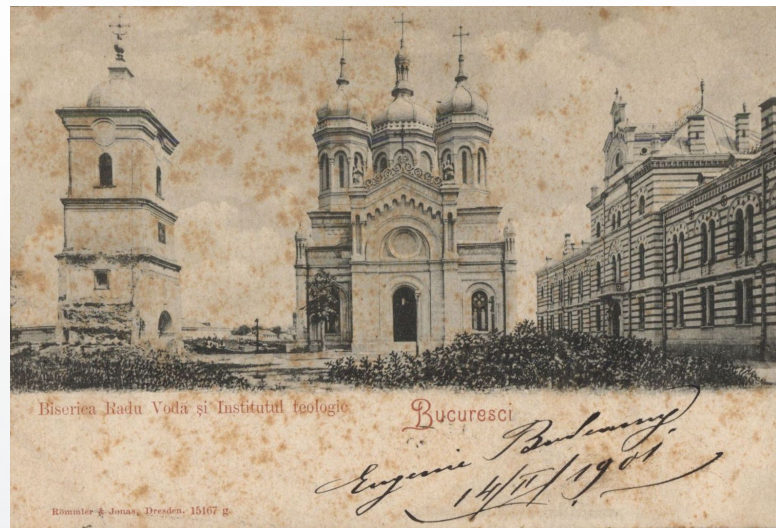 Biserica Radu Voda și Institutul teologic
Bucuresci
Eugenie
14/II/1901.
Römmler & Jonas, Dresden. 15167 g.